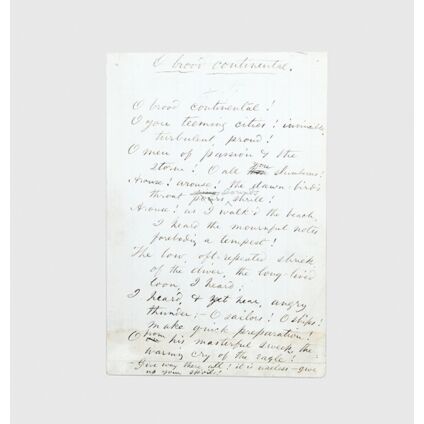 O brood continental.
O brood continental!
O you teeming cities! invincible,
turbulent, proud!
O men of passion & the
storm! O all you slumberers!
Arouse! arouse! the dawn-bird's
throat sounds shrill!
Arouse! as I walk'd the beach,
I heard the mournful notes
foreboding a tempest!
The low, oft-repeated shriek
of the diver, the long-lived
loon, I heard;
I heard, & yet hear, angry
thunder;—O sailors! O ships!
make quick preparation!
O from his masterful sweep, the
warning cry of the eagle!
—Give way there all! it is useless—give
up your spoils!